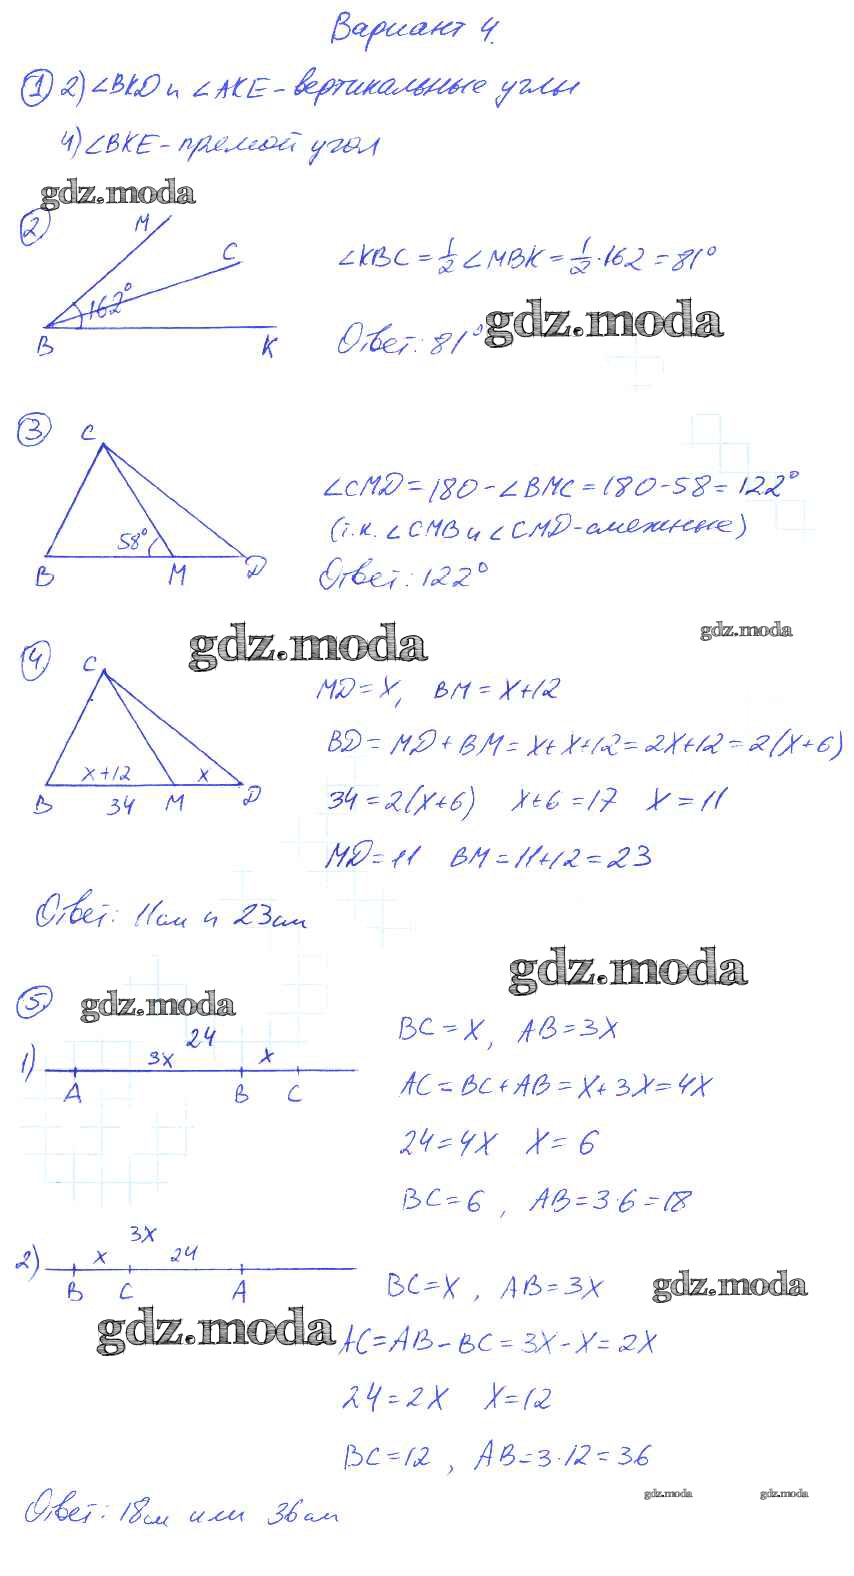 Вариант 4.
① 2) ∠BKD и ∠AKE – вертикальные углы
4) ∠BKE – прямой угол
gdz.moda
②
M
C
162°
B
K
∠KBC = 1/2 ∠MBK = 1/2 · 162 = 81°
Ответ: 81°
gdz.moda
③
C
58°
B
M
D
∠CMD = 180 - ∠BMC = 180 - 58 = 122°
(т.к. ∠CMB и ∠CMD - смежные)
Ответ: 122°
gdz.moda
gdz.moda
④
C
x+12
x
B
34
M
D
MD = x, BM = x+12
BD = MD + BM = x + x + 12 = 2x + 12 = 2(x+6)
34 = 2(x+6) x+6 = 17 x = 11
MD = 11 BM = 11+12 = 23
Ответ: 11см и 23см
gdz.moda
⑤
gdz.moda
24
1)
3x
x
A
B
C
BC = x, AB = 3x
AC = BC + AB = x + 3x = 4x
24 = 4x x = 6
BC = 6, AB = 3·6 = 18
3x
2)
x
24
B
C
A
BC = x, AB = 3x
gdz.moda
gdz.moda
AC = AB - BC = 3x - x = 2x
24 = 2x x = 12
BC = 12, AB = 3·12 = 36
gdz.moda
gdz.moda
Ответ: 18см или 36см